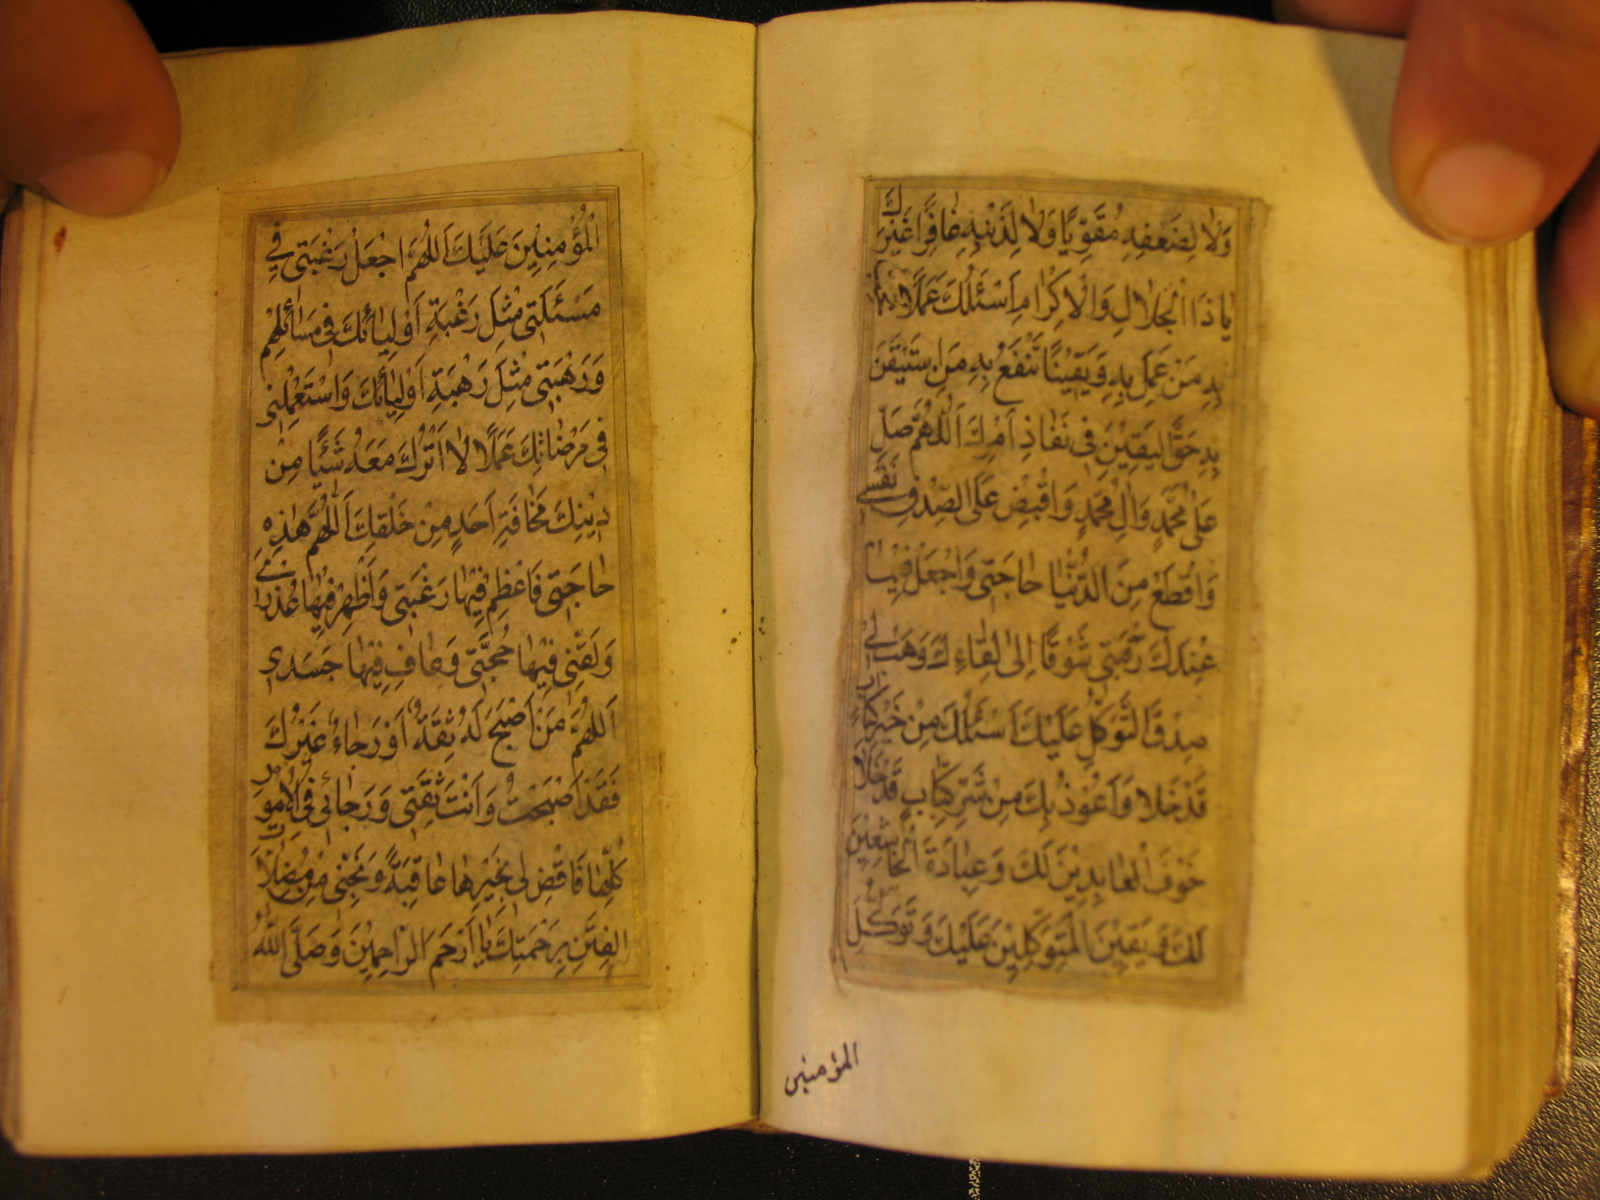 وَلَا لِضَعْفِهِ مُقَوِّيًا وَلَا لِذَنْبِهِ غَافِرًا غَيْرَكَ
يَا ذَا الْجَلَالِ وَالْاِكْرَامِ اَسْئَلُكَ عَمَلًا
بِهِ مَنْ عَمِلَ بِهِ وَيَقِينًا تَنْفَعُ بِهِ مَنِ سْتَيْقَنَ
بِهِ حَقَّ الْيَقِينِ فِى نَفَاذِ اَمْرِكَ اَللّٰهُمَّ صَلِّ
عَلٰى مُحَمَّدٍ وَاٰلِ مُحَمَّدٍ وَاقْبِضْ عَلَى الصِّدْقِ نَفْسِى
وَاقْطَعْ مِنَ الدُّنْيَا حَاجَتِى وَاجْعَلْ فِيمَا
عِنْدَكَ رَغْبَتِى شَوْقًا اِلٰى لِقَاءِكَ وَهَبْ لِى
صِدْقَ التَّوَكُّلِ عَلَيْكَ اَسْئَلُكَ مِنْ خَيْرِ كِتَابٍ
قَدْ خَلَا وَاَعُوذُ بِكَ مِنْ شَرِّ كِتَابٍ قَدْ خَلَا
خَوْفَ الْعَابِدِينَ لَكَ وَعِبَادَةَ الْخَاشِعِينَ
لَكَ وَيَقِينَ الْمُتَوَكِّلِينَ عَلَيْكَ وَتَوَكُّلَ
المؤمنين
الْمُؤْمِنِينَ عَلَيْكَ اَللّٰهُمَّ اجْعَلْ رَغْبَتِى فِى
مَسْئَلَتِى مِثْلَ رَغْبَةِ اَوْلِيَائِكَ فِى مَسَائِلِهِمْ
وَرَهْبَتِى مِثْلَ رَهْبَةِ اَوْلِيَائِكَ وَاسْتَعْمِلْنِى
فِى مَرْضَاتِكَ عَمَلًا لَا اَتْرُكُ مَعَهُ شَيْئًا مِنْ
دِينِكَ مَخَافَةِ اَحَدٍ مِنْ خَلْقِكَ اَللّٰهُمَّ هٰذِهِ
حَاجَتِى فَاَعْظِمْ فِيهَا رَغْبَتِى وَاَظْهِرْ فِيهَا عُذْرِى
وَلَقِّنِى فِيهَا حُجَّتِى وَعَافِ فِيهَا جَسَدِى
اَللّٰهُمَّ مَنْ اَصْبَحَ لَهُ ثِقَةٌ اَوْ رَجَاءٌ غَيْرُكَ
فَقَدْ اَصْبَحْتُ وَاَنْتَ ثِقَتِى وَرَجَائِى فِى الْاُمُورِ
كُلِّهَا فَاقْضِ لِى بِخَيْرِهَا عَاقِبَةً وَنَجِّنِى مِنْ مُضِلَّاتِ
الْفِتَنِ بِرَحْمَتِكَ يَا اَرْحَمَ الرَّاحِمِينَ وَصَلَّى اللّٰهُ